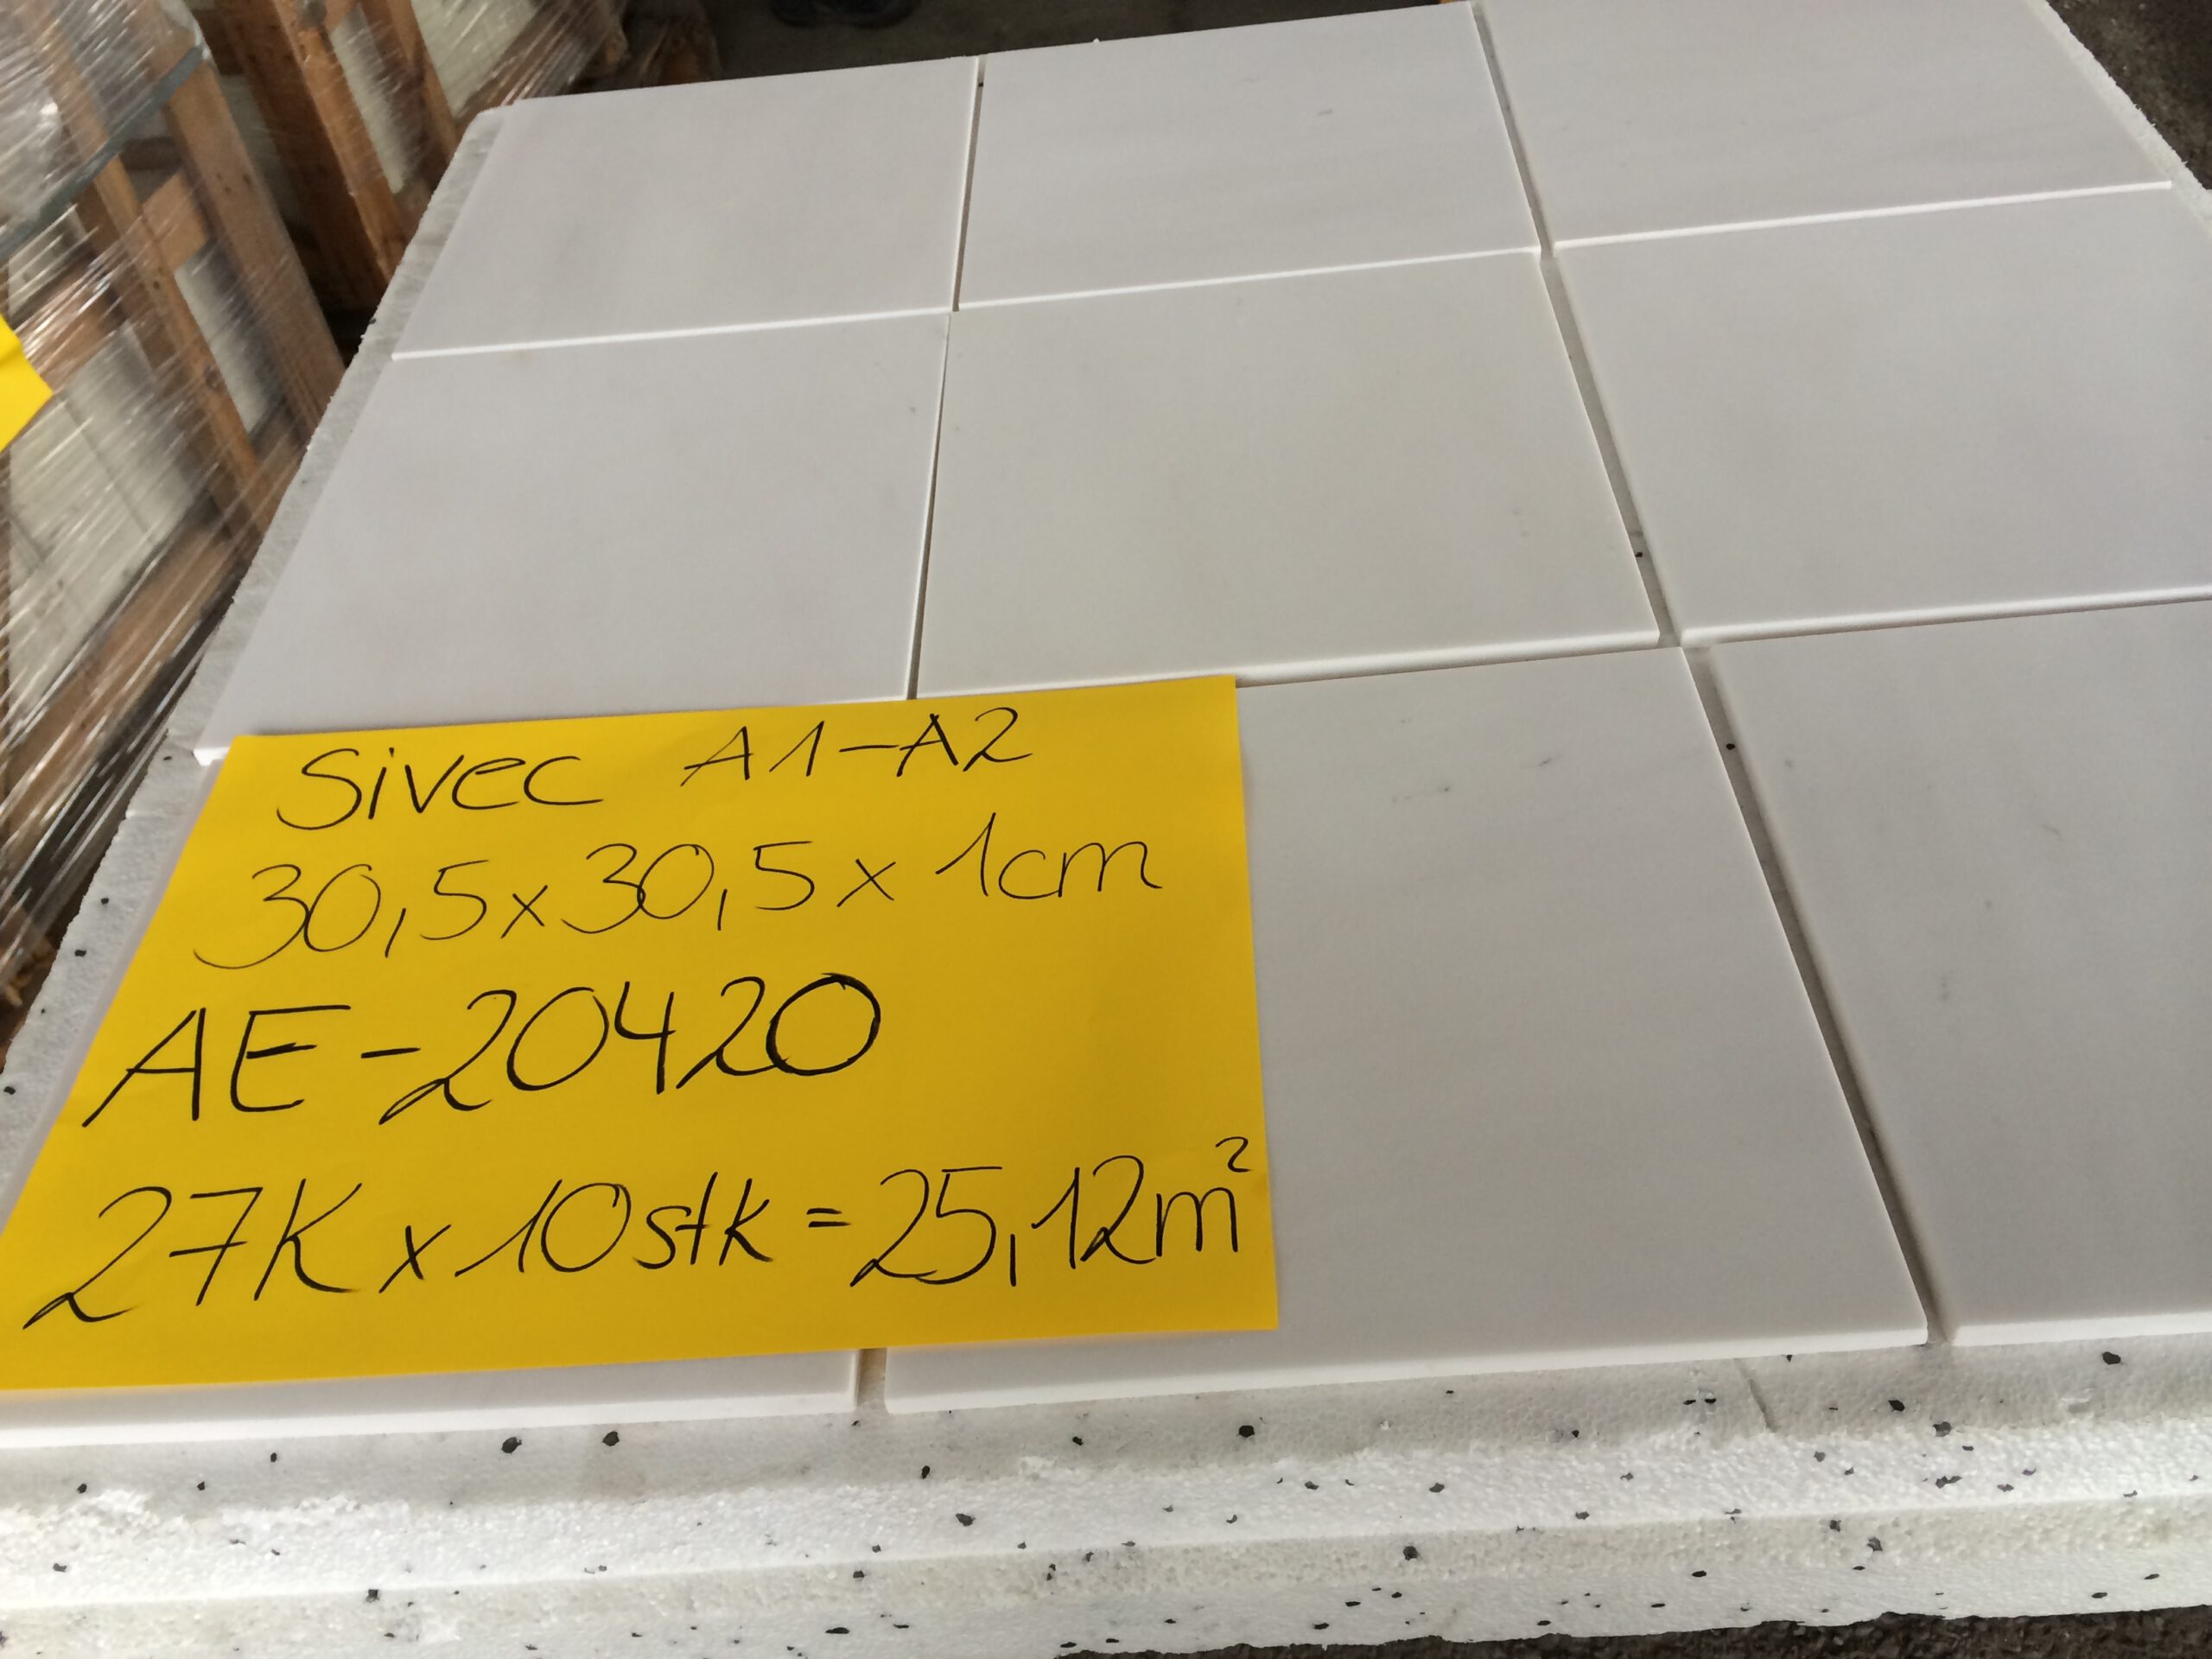 Sivec A1-A2
30,5x30,5x1cm
AE-20420
27K x 10stk = 25,12m²